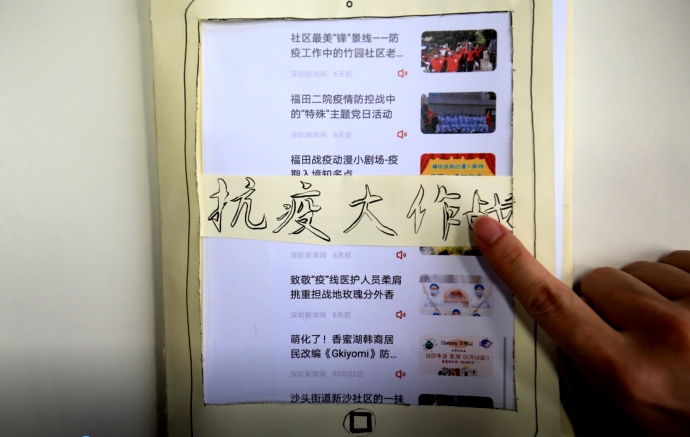 社区最美“锋”景线——防
疫工作中的竹园社区老...
深圳新闻网 6天前
福田二院疫情防控战中
的“特殊”主题党日活动
深圳新闻网 6天前
福田战疫动漫小剧场-疫
期入境知多点
抗疫大作战
深圳新闻网 6天前
致敬“疫”线医护人员柔肩
挑重担战地玫瑰分外香
深圳新闻网 6天前
萌化了！香蜜湖韩裔居
民改编《Gkiyomi》防...
深圳新闻网 03月03日
沙头街道新沙社区的一抹